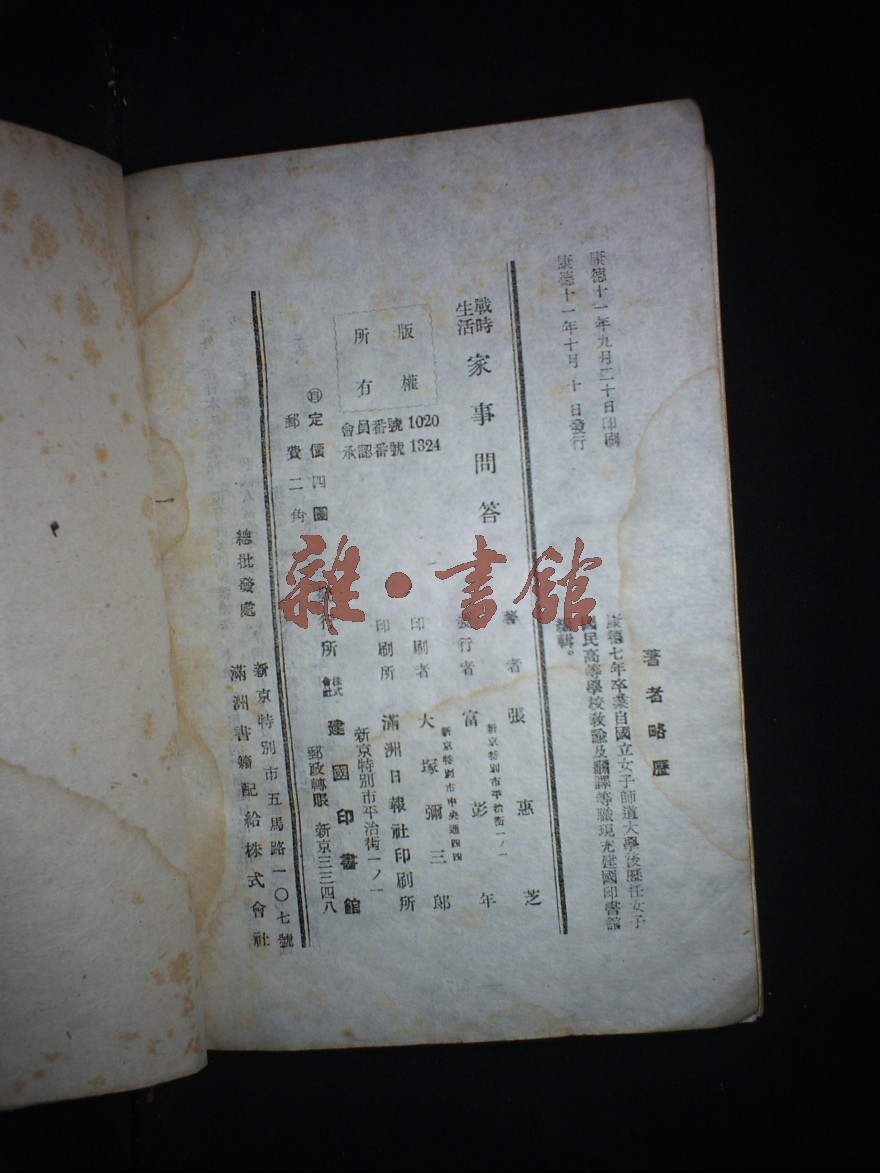 著者略歷
康德七年卒業自國立女子師道大學後歷任女子
國民高等學校敎諭及翻譯等職現充建國印書館
編輯。
康德十一年九月二十日印刷
康德十一年十月十日發行
戰時生活 家事問答
版權所有
會員番號1020
承認番號1324
定價四圓
郵費二角
著者 張惠芝
新京特別市平治街一ノ一
發行者 富彭年
新京特別市中央通四四
印刷者 大塚彌三郎
印刷所 滿洲日報社印刷所
新京特別市平治街一ノ一
發行所 株式會社 建國印書館
郵政轉賬 新京三三四八
新京特別市五馬路一〇七號
總批發處 滿洲書籍配給株式會社
雜·書館